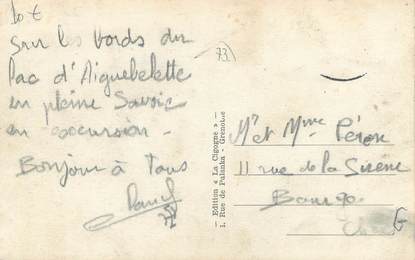 10 €
Sur les bords du
Lac d'Aiguebelette
en pleine Savoie
en excursion -
Bonjour à Tous
73
— Edition « La Cigogne » —
1, Rue de Palanka - Grenoble
Mr et Mme Péron
11 rue de la Sirène